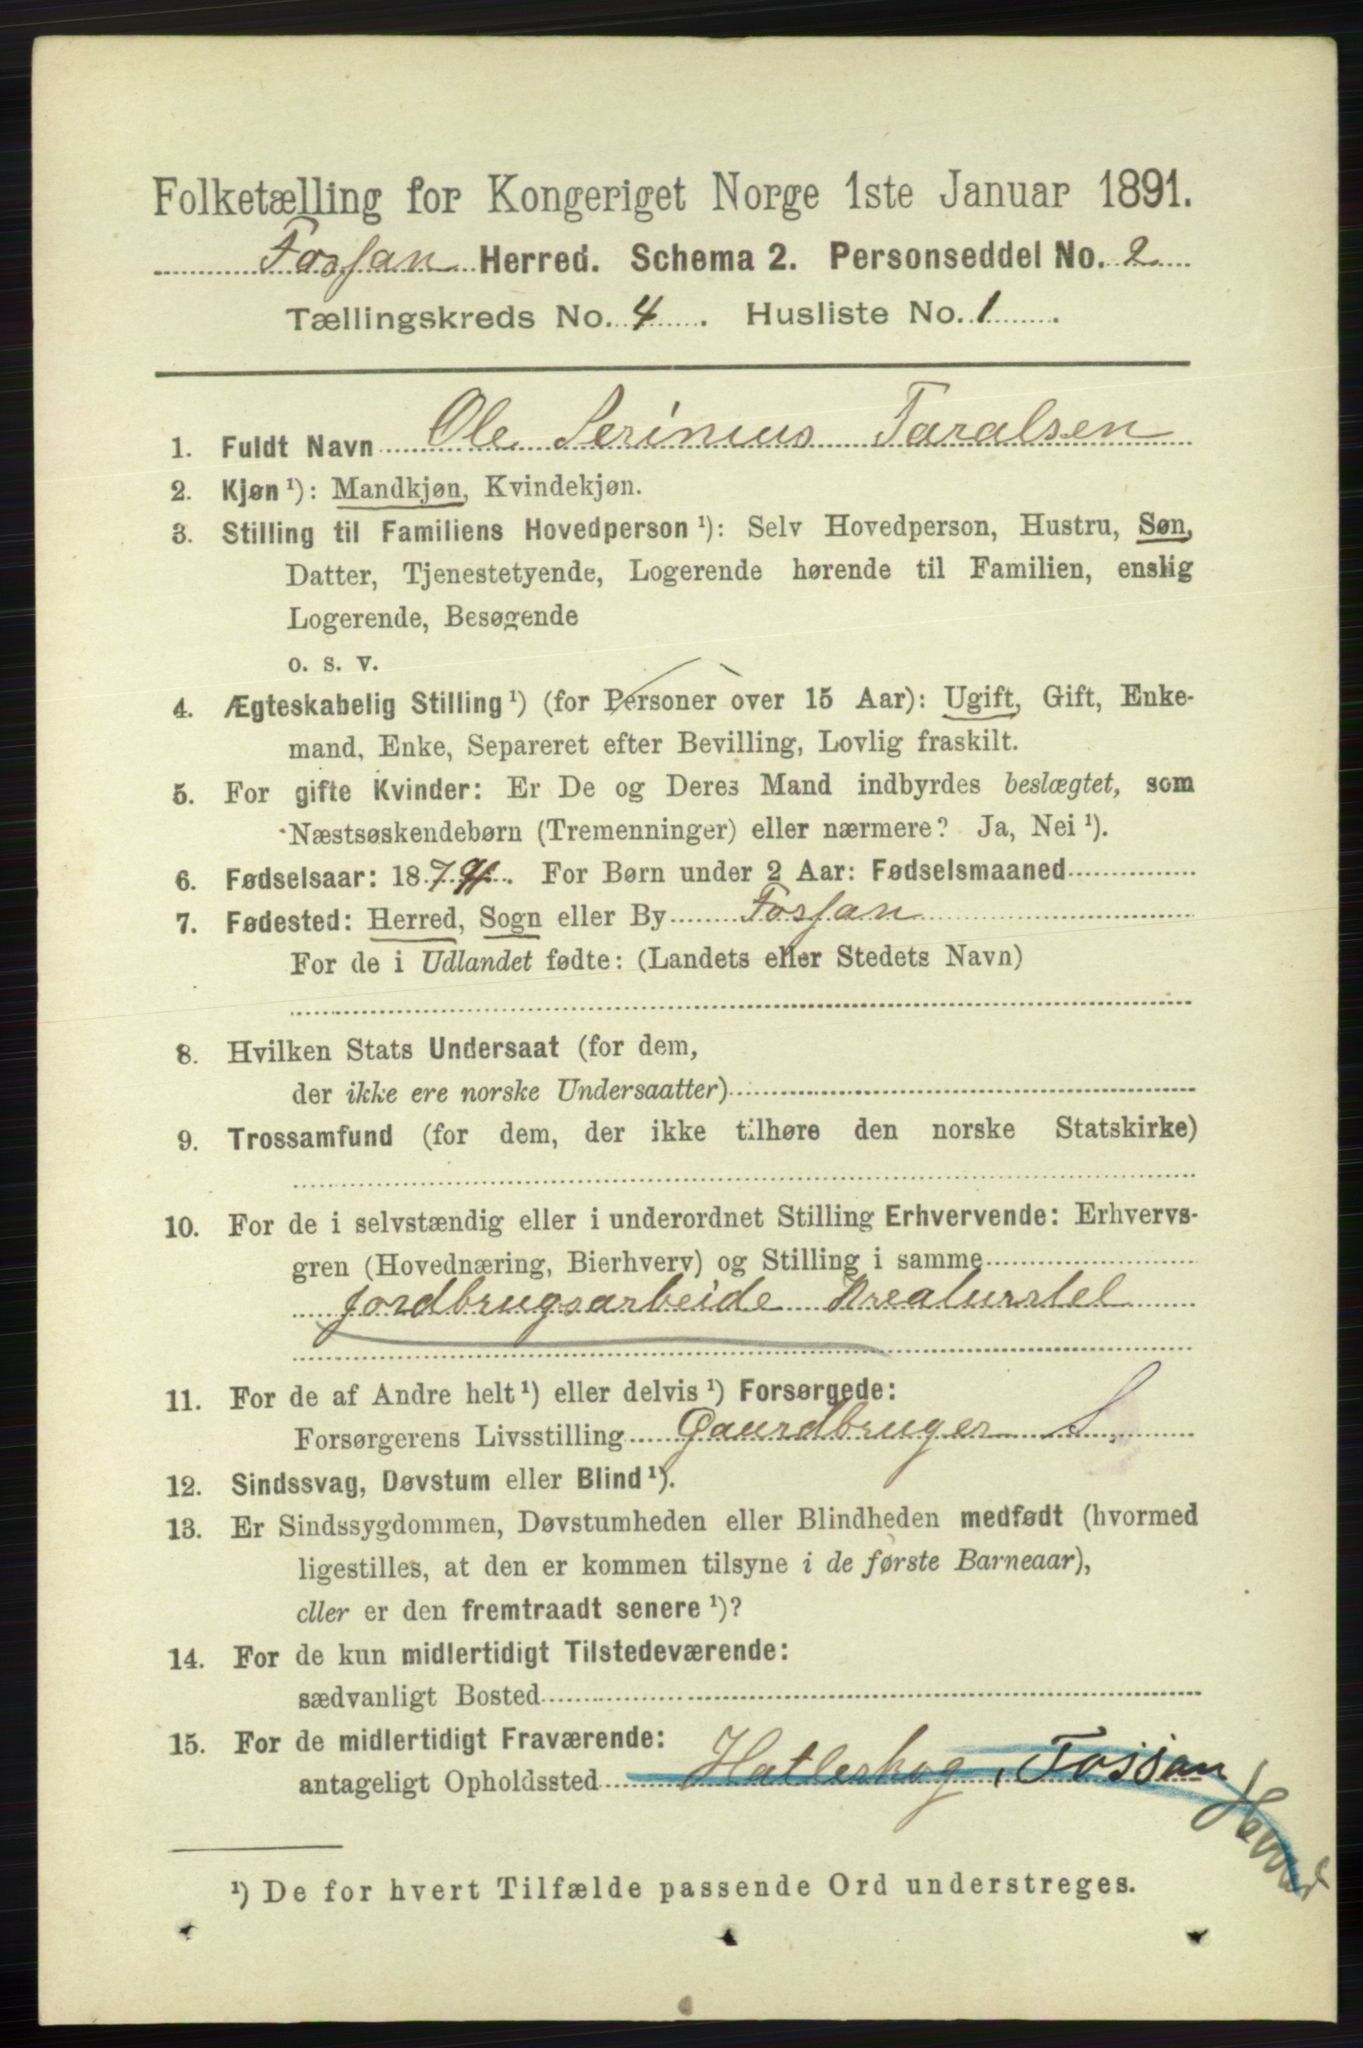 Folketælling for Kongeriget Norge 1ste Januar 1891.
Fossan Herred. Schema 2. Personseddel No. 2
Tællingskreds No. 4. Husliste No. 1.
1. Fuldt Navn Ole Serinius Taralsen
2. Kjøn ¹): Mandkjøn, Kvindekjøn.
3. Stilling til Familiens Hovedperson ¹): Selv Hovedperson, Hustru, Søn,
Datter, Tjenestetyende, Logerende hørende til Familien, enslig
Logerende, Besøgende
o. s. v.
4. Ægteskabelig Stilling ¹) (for Personer over 15 Aar): Ugift, Gift, Enke-
mand, Enke, Separeret efter Bevilling, Lovlig fraskilt.
5. For gifte Kvinder: Er De og Deres Mand indbyrdes beslægtet, som
Næstsøskendebørn (Tremenninger) eller nærmere? Ja, Nei ¹).
6. Fødselsaar: 187. For Børn under 2 Aar: Fødselsmaaned
7. Fødested: Herred, Sogn eller By Fossan
For de i Udlandet fødte: (Landets eller Stedets Navn)
8. Hvilken Stats Undersaat (for dem,
der ikke ere norske Undersaatter)
9. Trossamfund (for dem, der ikke tilhøre den norske Statskirke)
10. For de i selvstændig eller i underordnet Stilling Erhvervende: Erhvervs-
gren (Hovednæring, Bierhverv) og Stilling i samme
Jordbrugsarbeide Kreaturstel
11. For de af Andre helt ¹) eller delvis ¹) Forsørgede:
Forsørgerens Livsstilling Gaardbruger S.
12. Sindssvag, Døvstum eller Blind ¹).
13. Er Sindssygdommen, Døvstumheden eller Blindheden medfødt (hvormed
ligestilles, at den er kommen tilsyne i de første Barneaar),
eller er den fremtraadt senere ¹)?
14. For de kun midlertidigt Tilstedeværende:
sædvanligt Bosted
15. For de midlertidigt Fraværende:
antageligt Opholdssted Hatleskog, Fossan
Herred
¹) De for hvert Tilfælde passende Ord understreges.